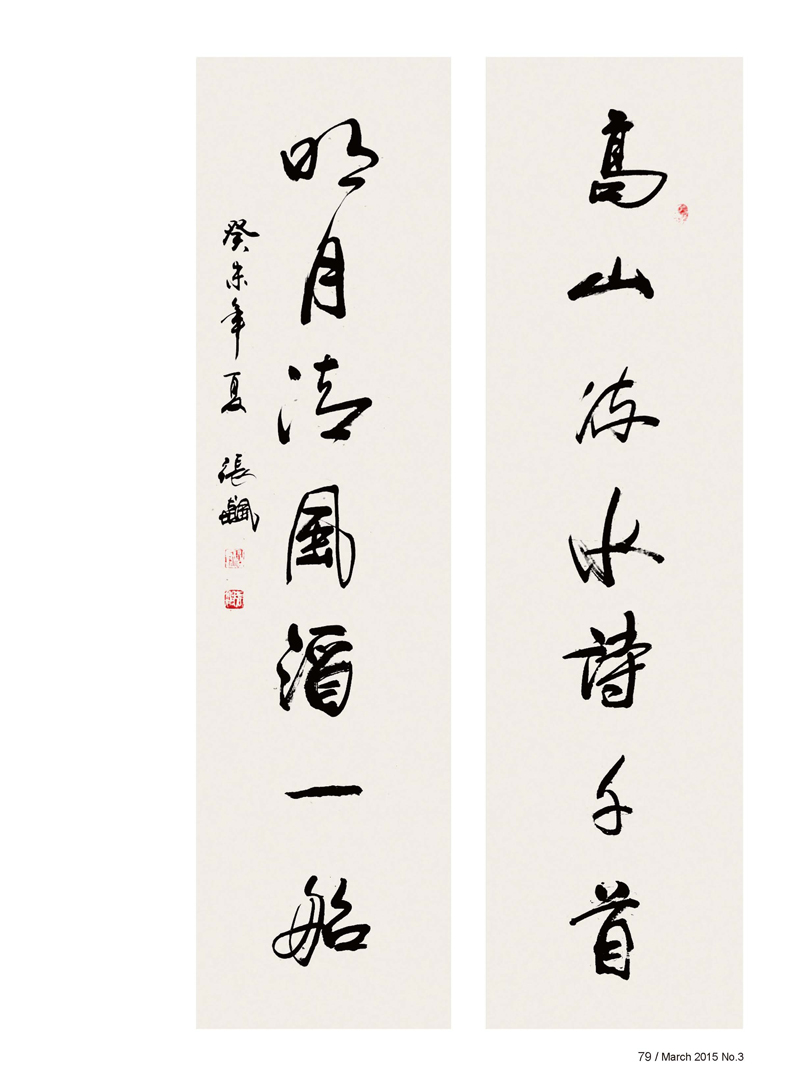 高山流水詩千首
明月清風酒一船
癸未年夏 張飆
79 / March 2015 No.3